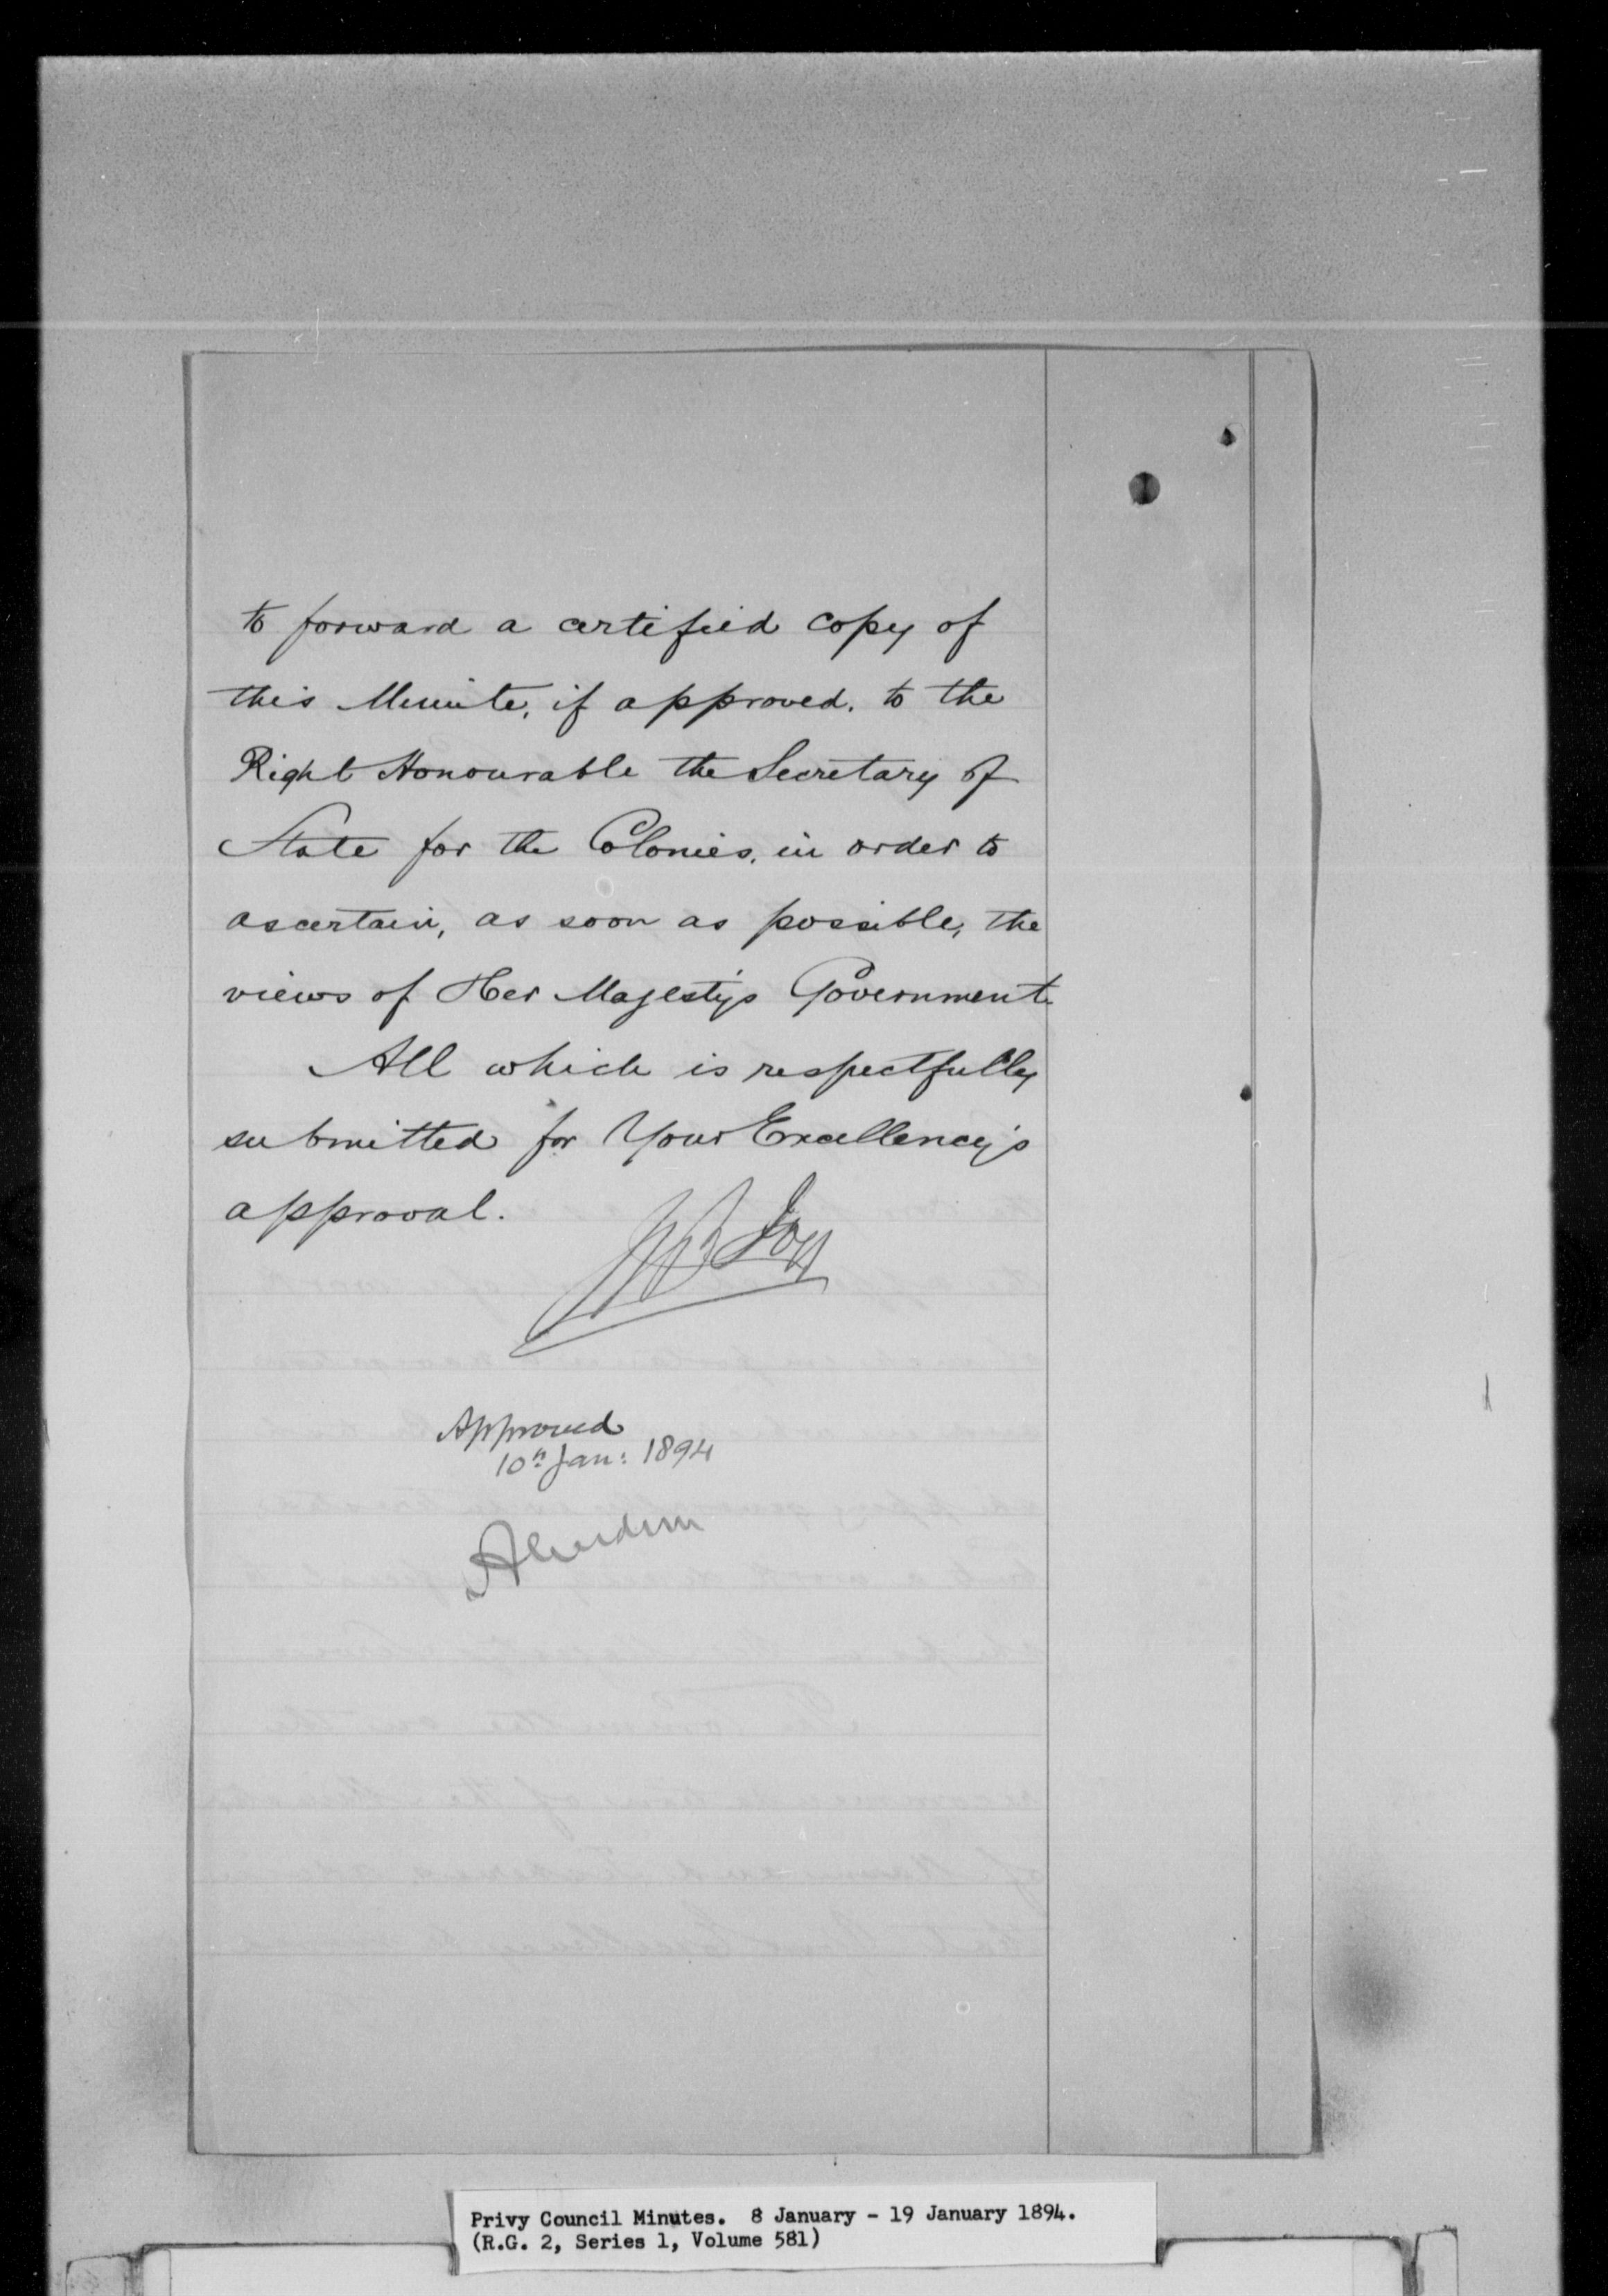 to forward a certified copy of
this Minute, if approved, to the
Right Honourable the Secretary of
State for the Colonies, in order to
ascertain, as soon as possible, the
views of Her Majesty's Government.
All which is respectfully
submitted for Your Excellency's
approval.
Approved
10th Jan: 1894
Aberdeen
Privy Council Minutes. 8 January - 19 January 1894.
(R.G. 2, Series 1, Volume 581)